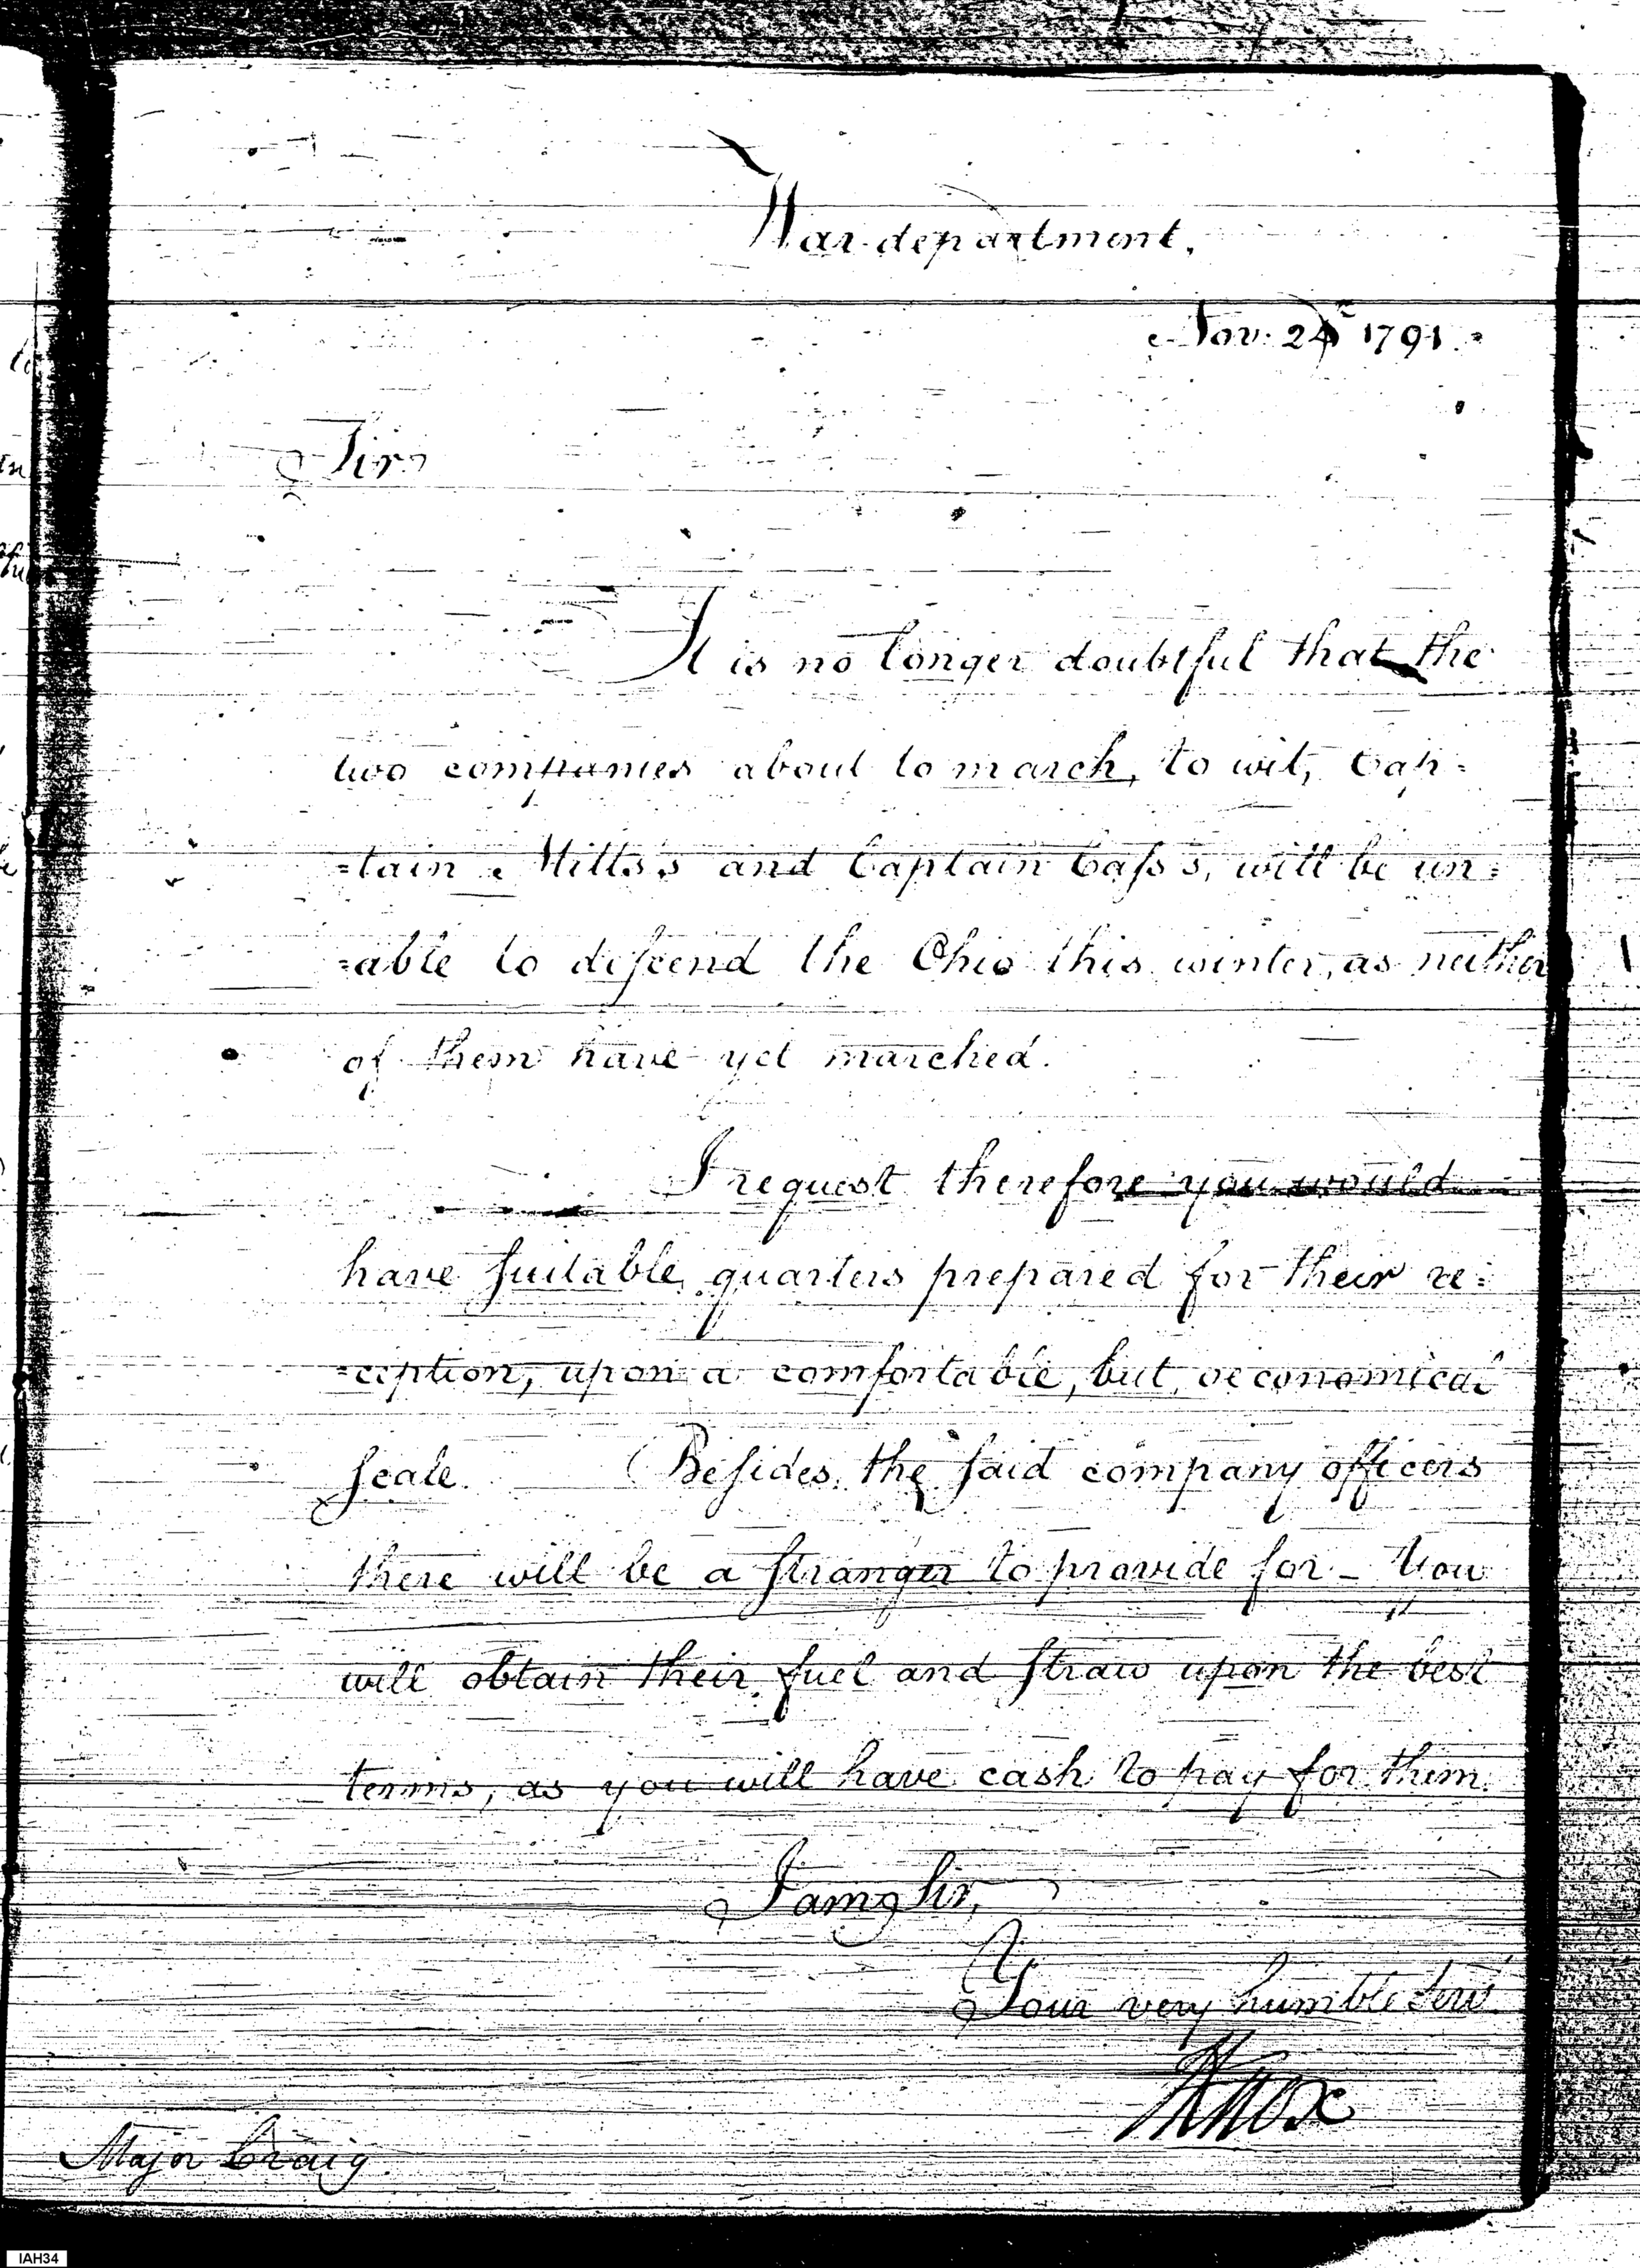 War department,
Nov. 24th 1791.
Sir
It is no longer doubtful that the
two companies about to march, to wit, Cap=
=tain Mills's and Captain Cass's, will be un=
=able to descend the Ohio this winter, as neither
of them have yet marched.
I request therefore you would
have suitable quarters prepared for their re=
=ception, upon a comfortable, but oeconomical
scale. Besides the said company officers
there will be a stranger to provide for – You
will obtain their fuel and straw upon the best
terms, as you will have cash to pay for them.
I am Sir,
Your very humble Servt
HKnox
Major Craig.
IAH34